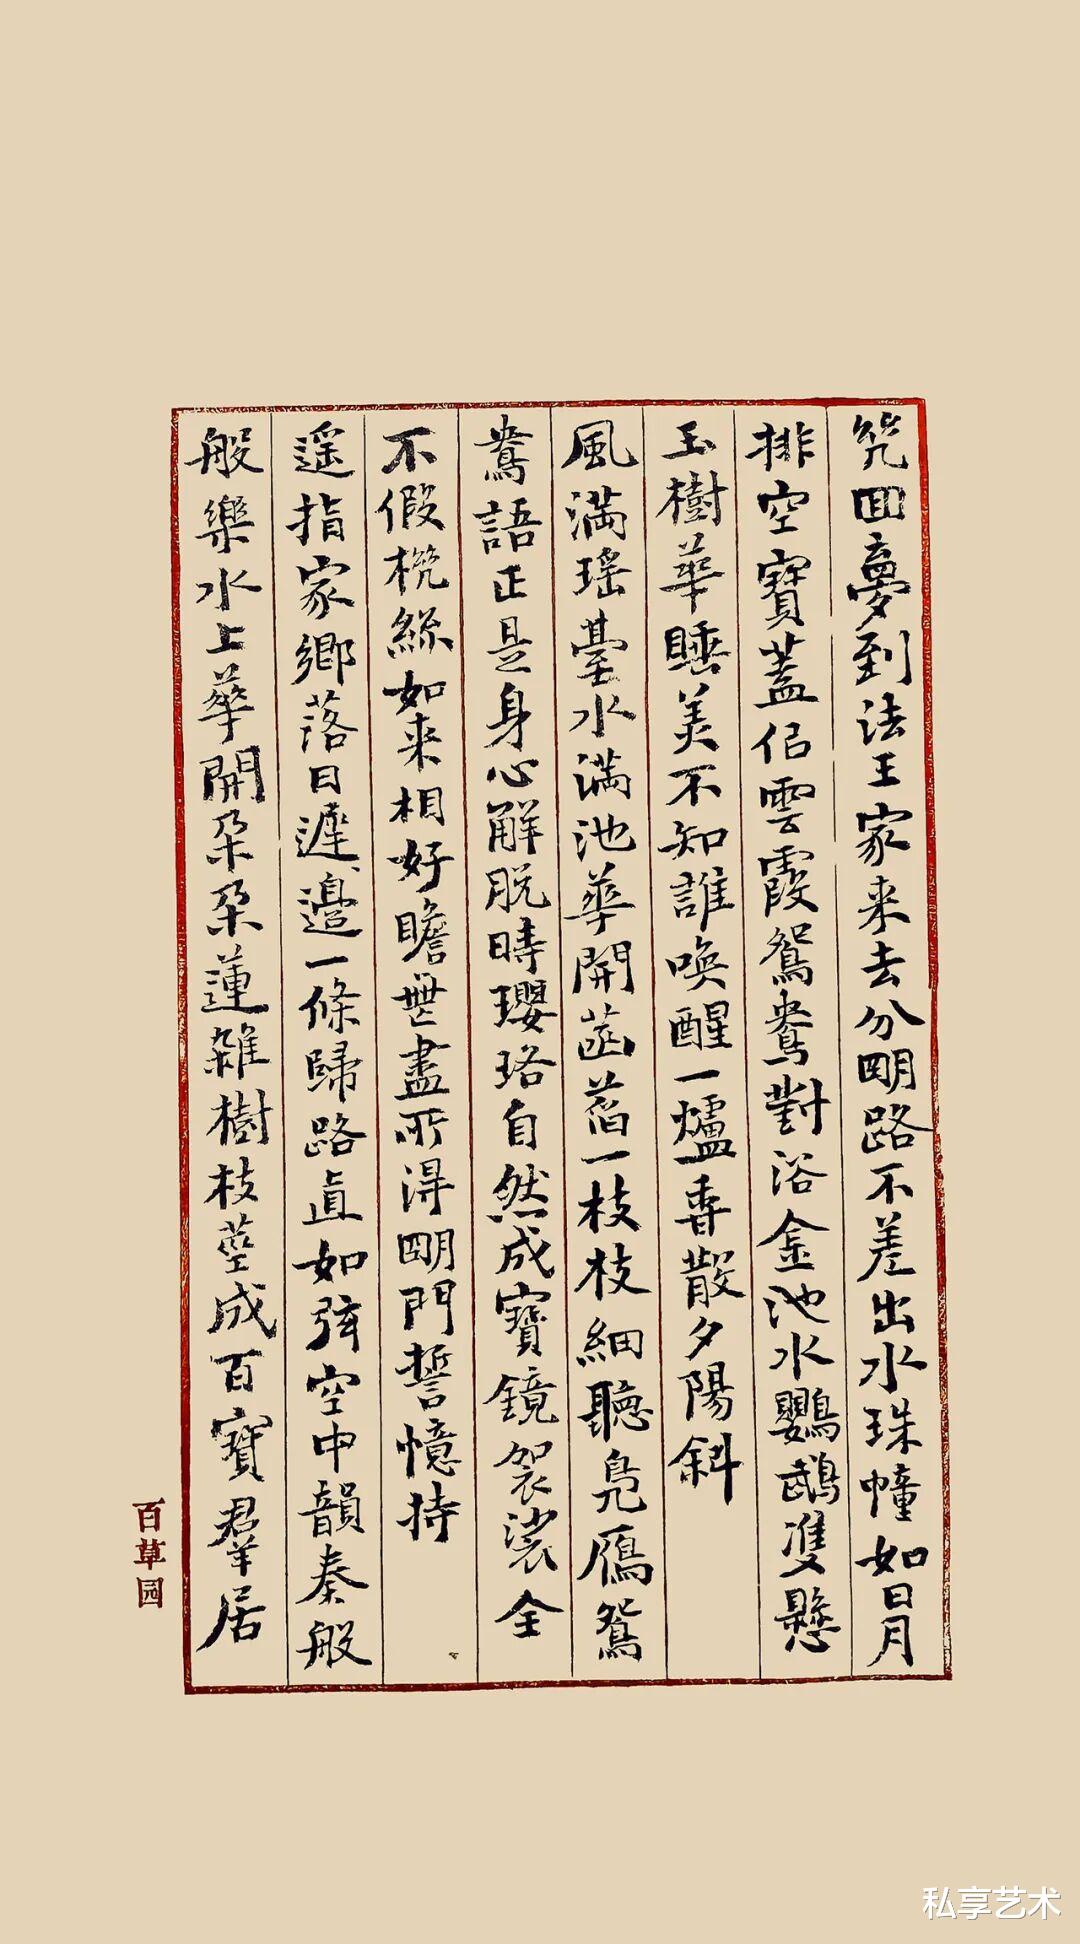 回夢到法王家来去分朙路不差出水珠幢如日月
排空寶蓋佀雲霞鴛鴦對浴金池水鸚鵡雙懸
玉樹華睡美不知誰唤醒一爐香散夕陽斜
風満瑶臺水満池華開菡萏一枝枝細聽鳧鴈鴛
鴦語正是身心解脱時瓔珞自然成寶鏡袈裟全
不假梭絲如来相好瞻無盡所得朙門誓憶持
遥指家鄉落日遲邊一條歸路直如弦空中韻奏般
般樂水上華開朵朵蓮雜樹枝莖成百寶羣居
百草园
私享艺术